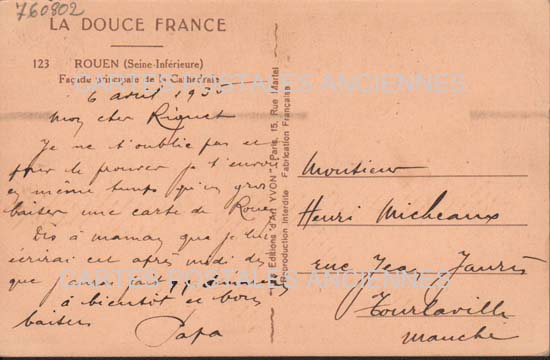 760802
LA DOUCE FRANCE
123 ROUEN (Seine-Inférieure)
Façade principale de la Cathédrale
CARTES POSTALES ANCIENNES
6 avril 193
Mon cher Riquet
Je ne t'oublie pas et
pour le prouver je t'envoie
en même temps qu'un gros
baiser une carte de Rouen
Dis à maman que je lui
écrirai cet après midi dès
que j'aurai
à bientôt et bons
baisers
Papa
Les Editions d'Art YVON, Paris, 15, Rue Martel
Reproduction Interdite Fabrication Française
Monsieur
Henri Micheaux
rue Jean Jaurès
Tourlaville
Manche
CARTES POSTALES ANCIENNES